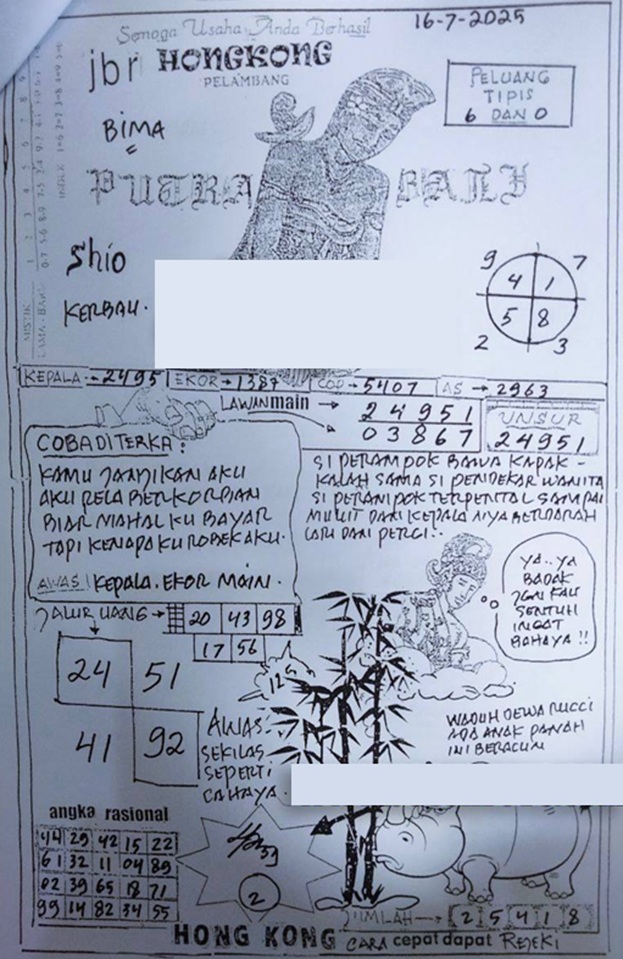 Semoga Usaha Anda Berhasil
16-7-2025
jbr HONGKONG
PELAMBANG
PELUANG
TIPIS
6 DAN 0
BIMA
PUTRA BALI
Shio
KERBAU.
9 7
4 1
5 8
2 3
KEPALA - 2495 EKOR → 1387 COP - 5407 AS → 2963
LAWAN main → 24951
03867
UNSUR
24951
COBA DITERKA:
KAMU JANJIKAN AKU
AKU RELA BERKORBAN
BIAR MAHAL KU BAYAR
TAPI KENAPA KU ROBEK AKU.
AWAS! KEPALA. EKOR MAIN.
SI PERAMPOK BAWA KAPAK -
KALAH SAMA SI PENDEKAR WANITA
SI PERAMPOK TERPENTAL SAMPAI
MULUT DAN KEPALA NYA BERDARAH
LARI DAN PERGI!.
YA..YA
BADAK
JGN KAU
SENTUH
INGAT
BAHAYA!!
JALUR UANG → 20 43 98
17 56
24 51
41 92
126
AWAS.
SEKILAS
SEPERTI
CAHAYA.
WADUH DEWA RUCCI
ADA ANAK PANAH
INI BERACUN
angka rasional
44 29 42 15 22
61 32 11 04 89
02 39 65 18 71
99 14 82 34 55
2
JUMLAH → 2 5 4 1 8
HONG KONG CARA cepat dapat REJEKI